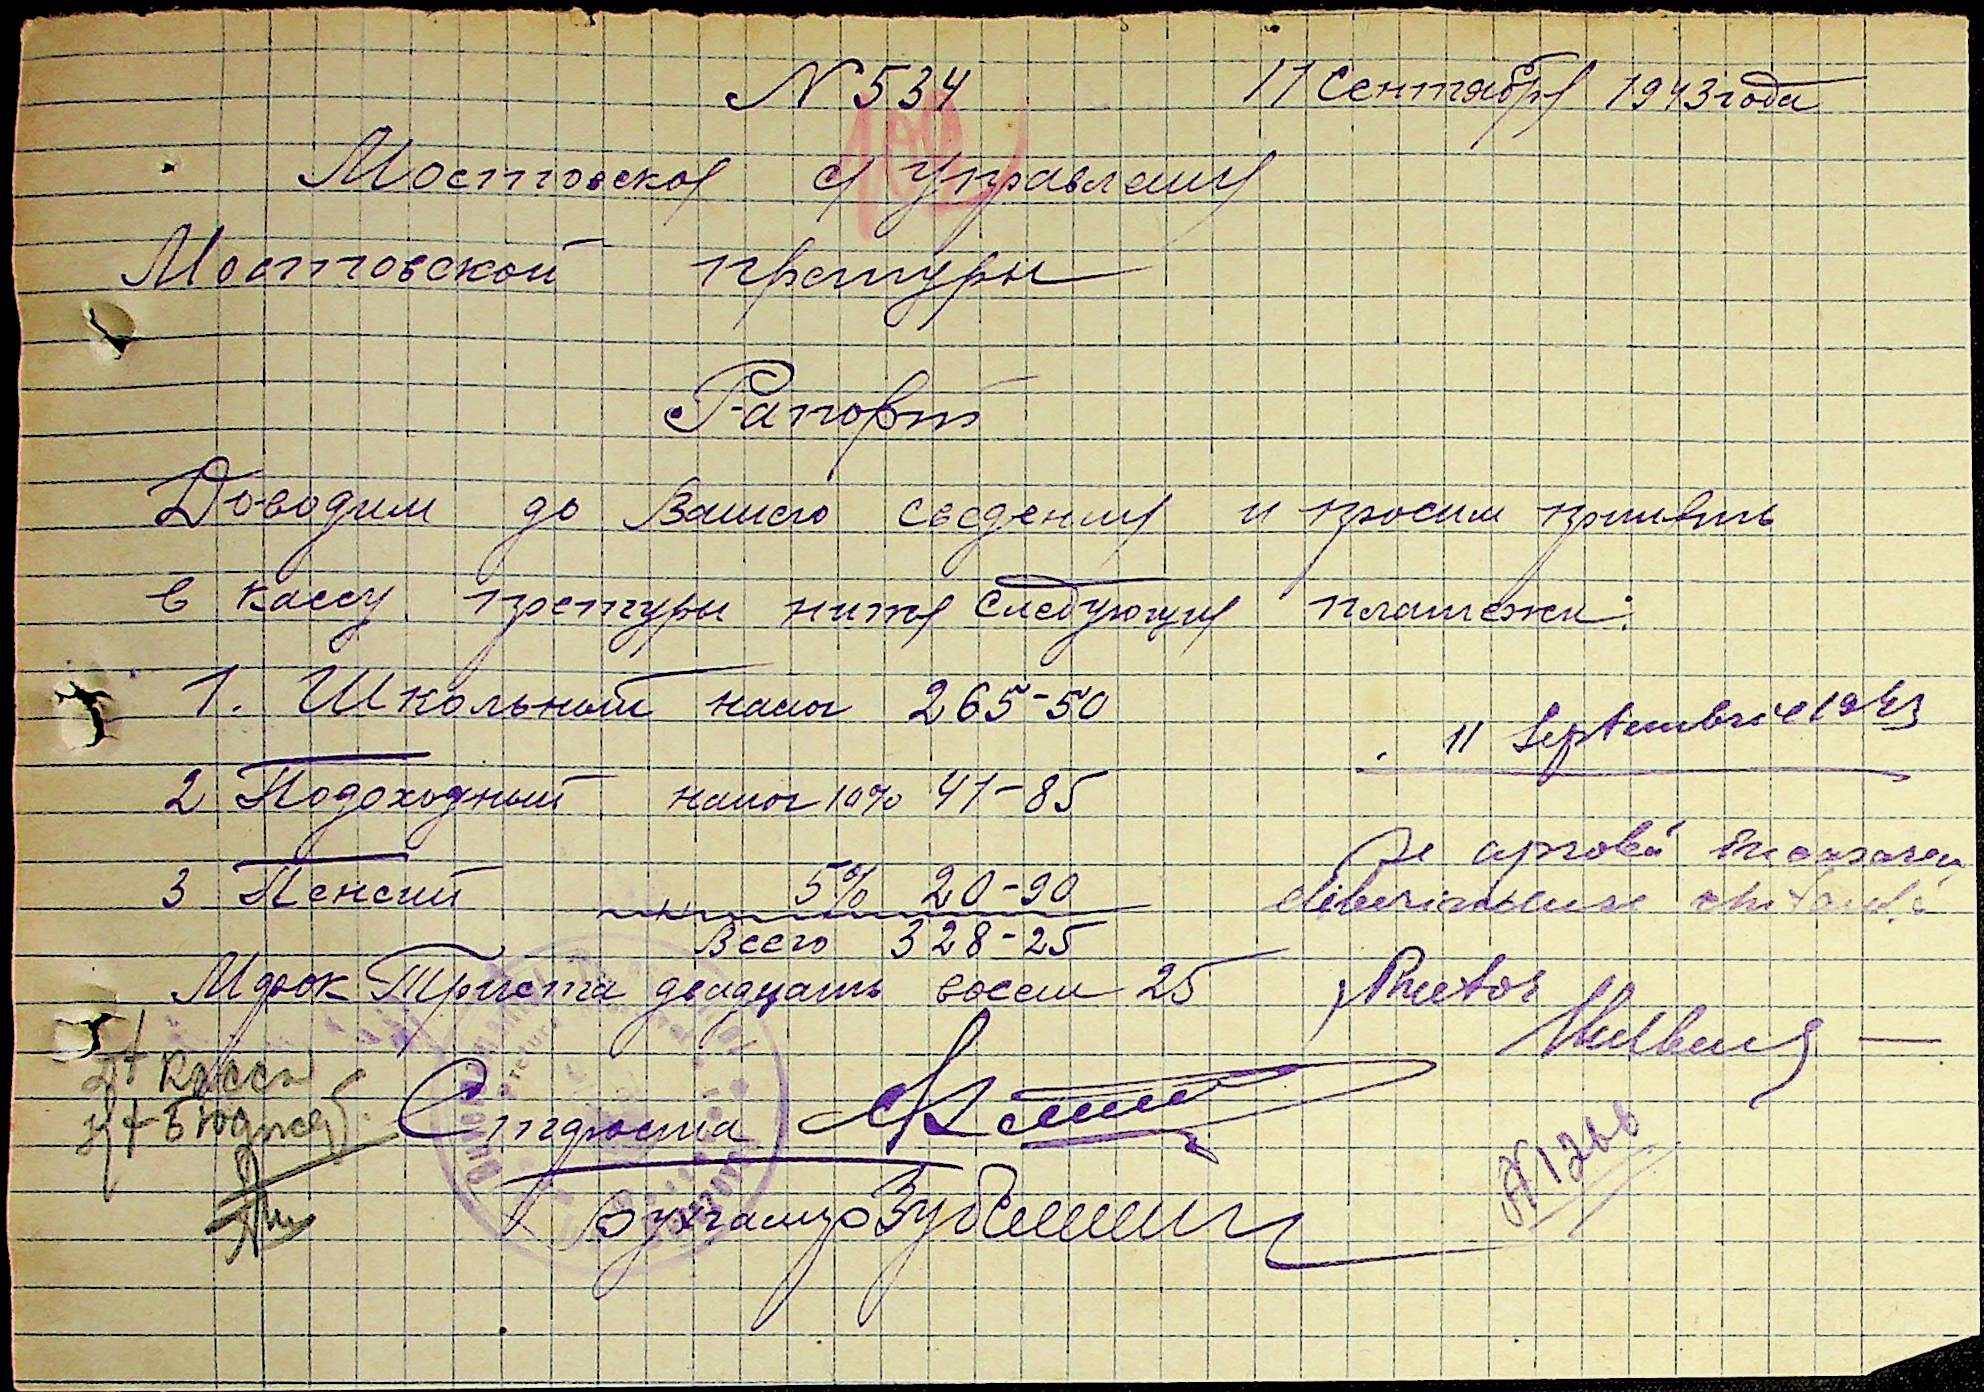 N 534 11 Сентября 1943 года
Мостовское с/управление
Мостовской претуры
Рапорт
Доводим до Вашего сведения и просим принять
в кассу претуры ниже следующие платежи:
1. Школьный налог 265-50
2 Подоходный налог 10% 41-85
3 Пенсии 5% 20-90
Всего 328-25
Марок Триста двадцать восем 25
11 Septembrie 1943
Se aprobă încasarea
eliberându-se chitanță
Pretor
Дт Кассы
Кт Бюджет
Староста
Бухгалтер
N 1266